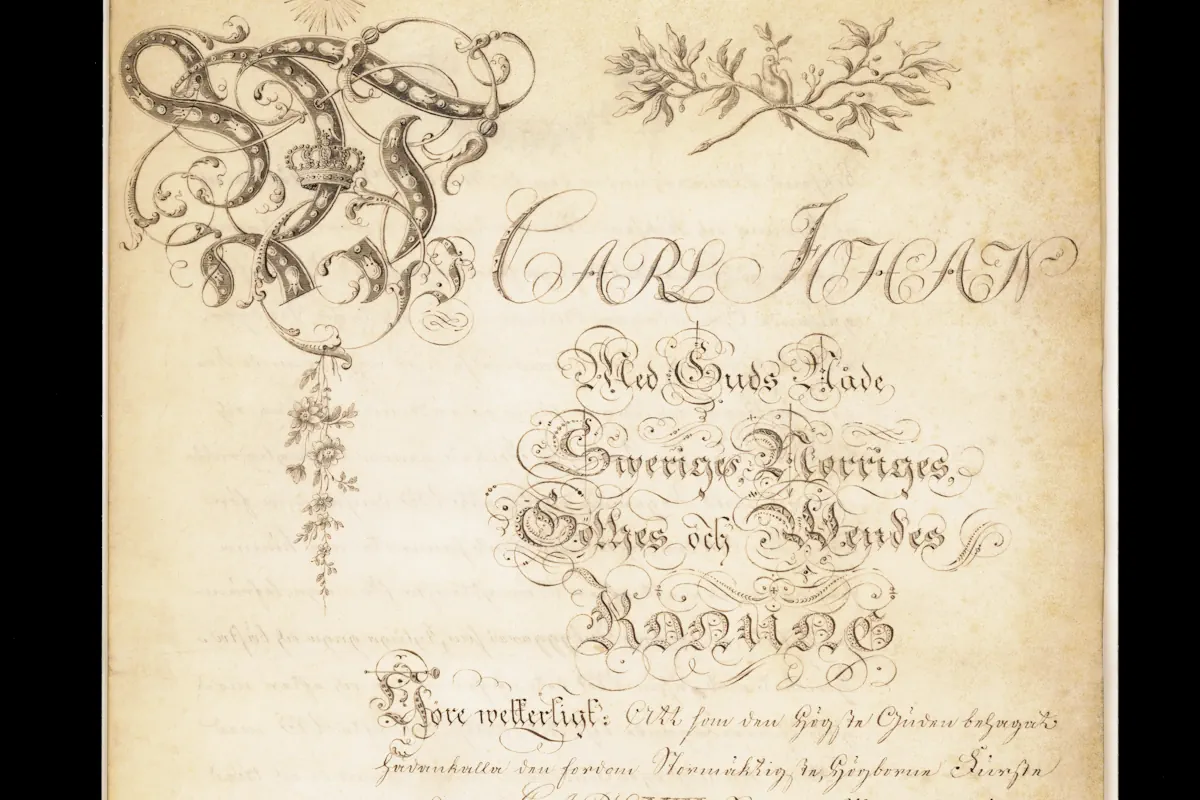 CARL JOHAN
Med Guds Nåde
Sweriges, Norriges,
Göthes och Wendes
KONUNG
Göre wetterligt: Att som den Högste Guden behagat
hädankalla den fordom Stormäktigste, Högborne Furste